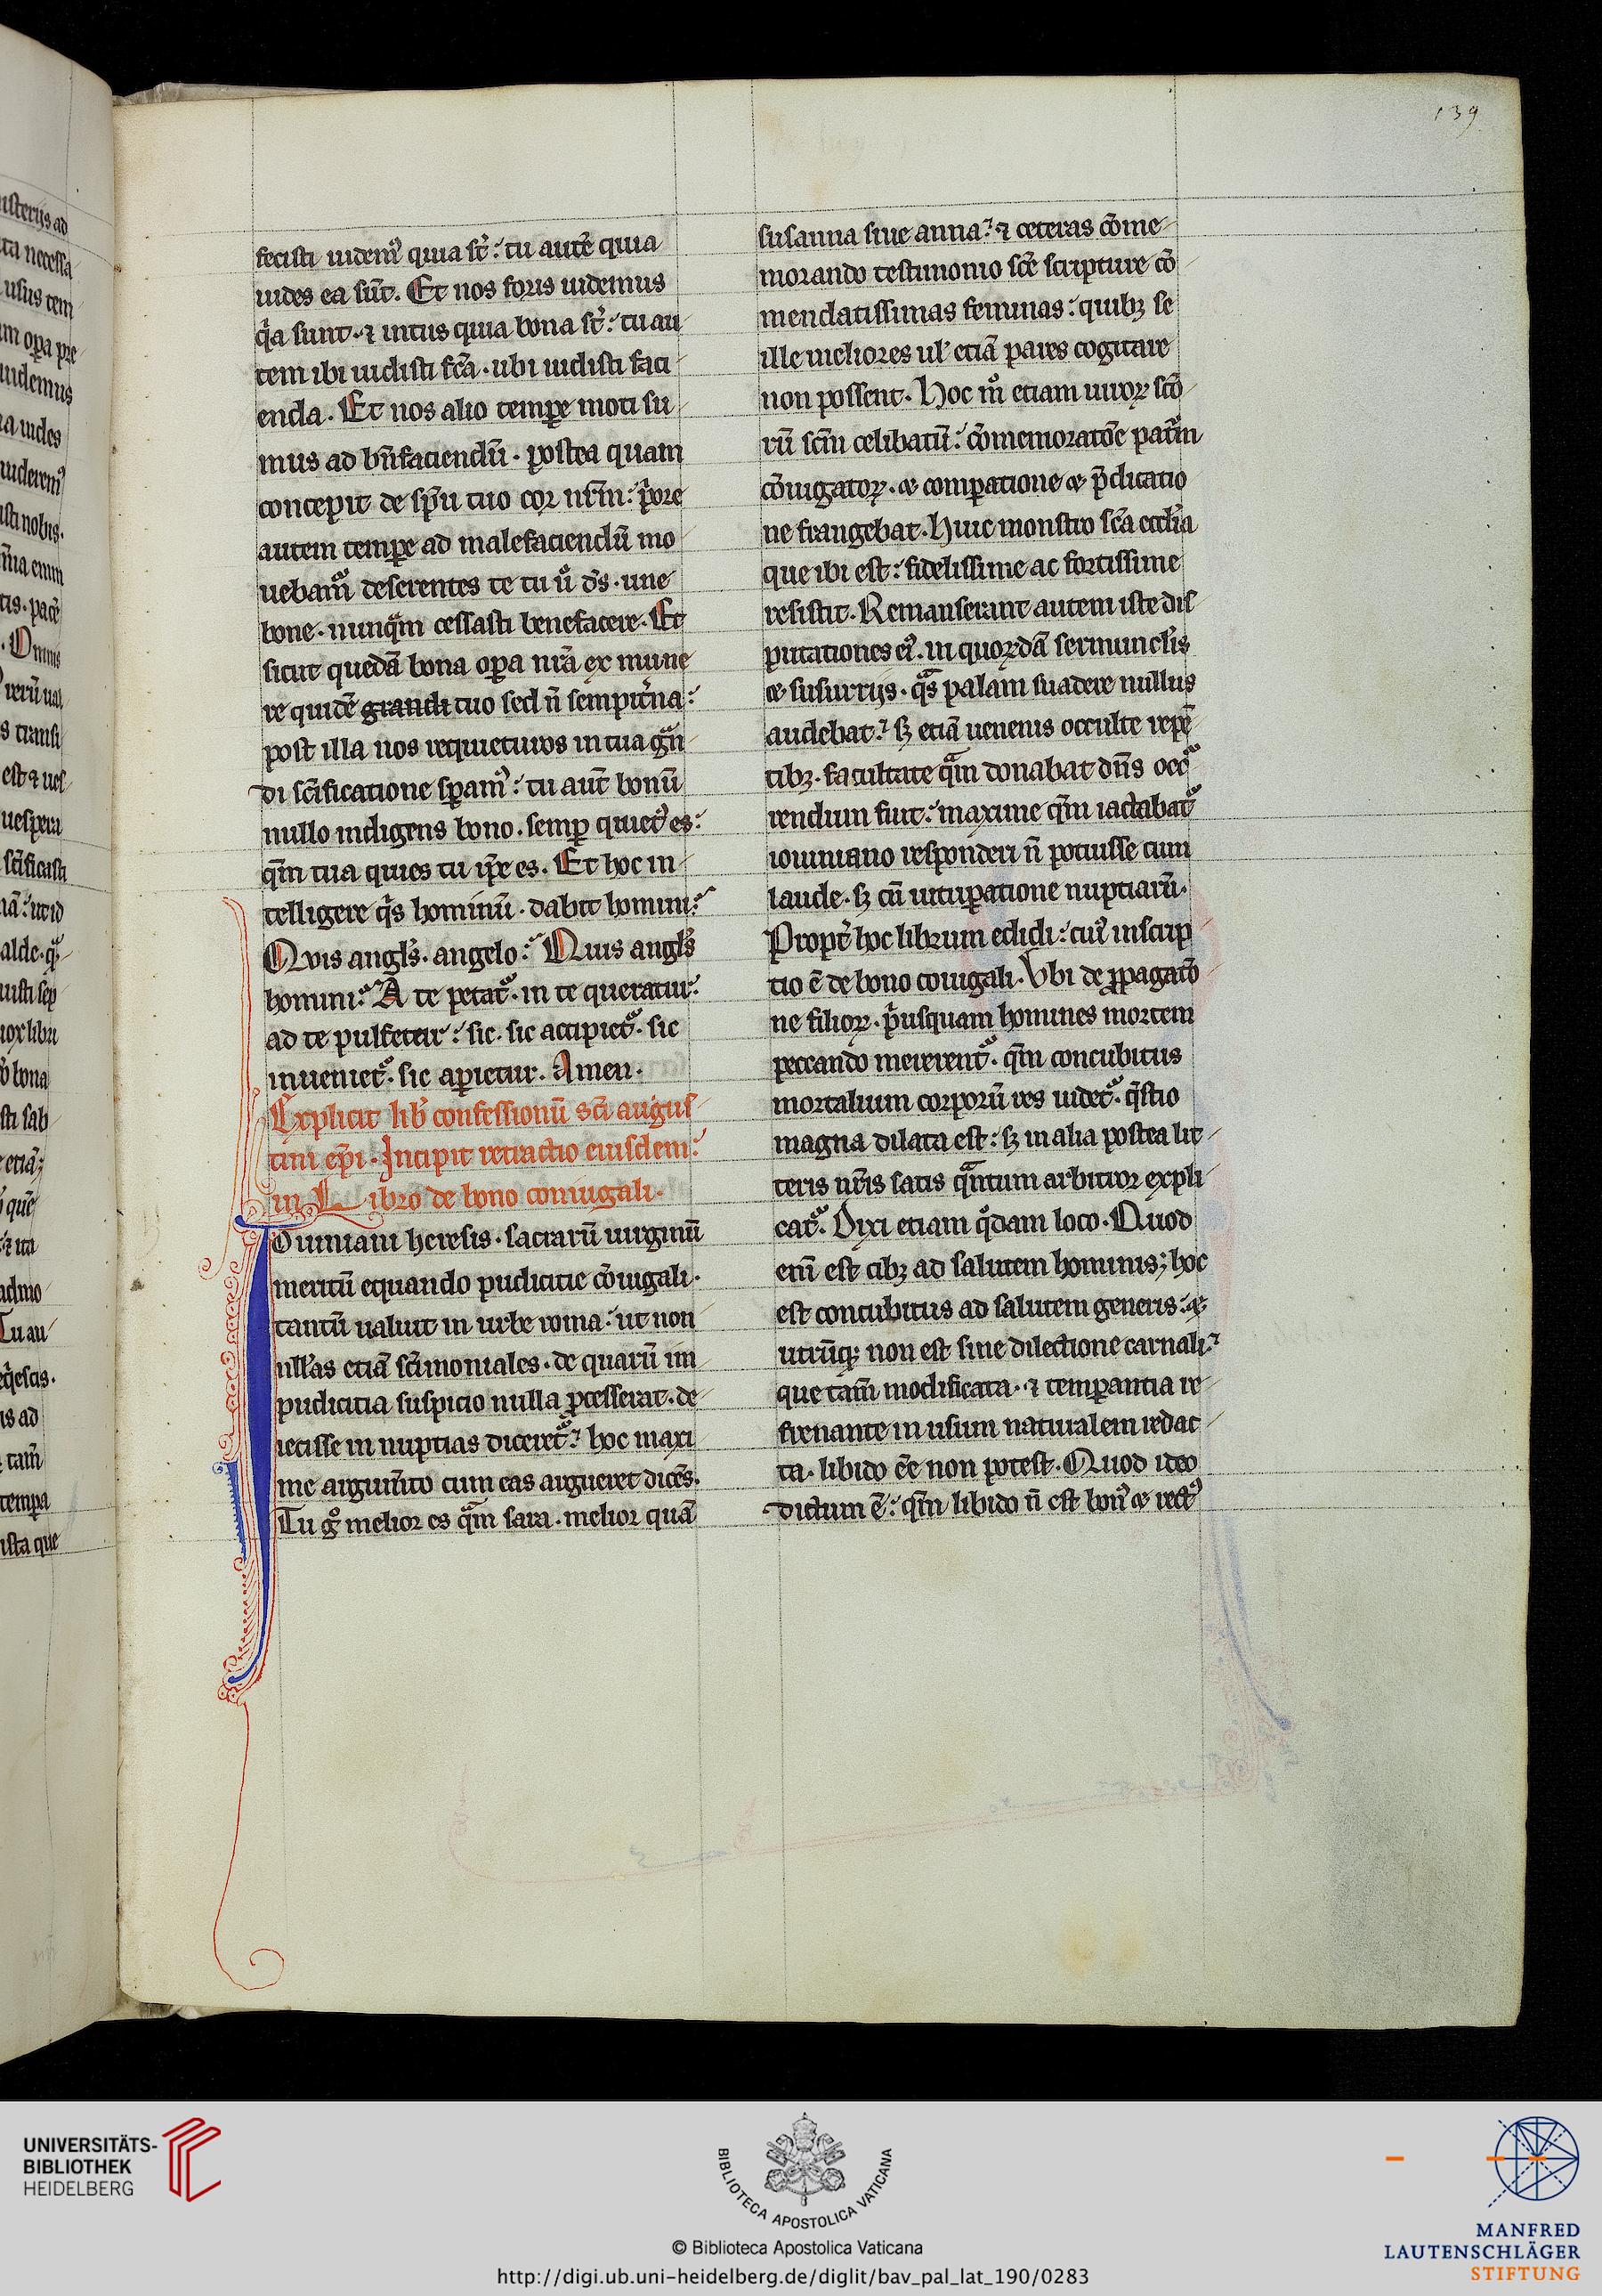 139
fecisti uidemꝰ quia st̄: tu autē quia
uides ea sūt. Et nos foris uidemus
qͥa sunt· ⁊ intus quia bona st̄: tu au
tem ibi uidisti fcā· ubi uidisti faci
enda. Et nos alio tempꝑe moti su
mus ad bn̄faciendū· postea quam
concepit de spū tuo cor nr̄m: pͥore
autem tempꝑe ad malefaciendū mo
uebamͣ deserentes te tu ů ds̄· une
bone· nunqͣm cessasti benefacere· Et
sicut quedā bona opꝑa nrā ex mune
re quidē grandi tuo sed n̄ sempit̄na:
post illa nos requieturos in tua gͣn
di scīficatione spꝑamꝰ: tu aut̄ bonū
nullo indigens bono. semꝑ quietꝰ es:
qm̄ tua quies tu ip̄e es. Et hoc in
telligere qͥs hominū· dabit homini:
Quis angl̄s· angelo: Quis angl̄s
homini: A te petat᷑· in te queratur:
ad te pulsetur: sic· sic accipiet᷑· sic
inueniet᷑· sic apꝑietur. Amen·
Explicit lib̄ confessionū sc̄i augus
tini ep̄i· Incipit retractio eiusdem:
in Libro de bono coniugali·
Iouiniani heresis· sacrarū uirginū
meritū equando pudicitie cōiugali·
tantū ualuit in urbe roma: ut non
null̄as etiā sc̄imoniales· de quarū im
pudicitia suspicio nulla p̄cesserat· de
iecisse in nuptias diceret᷑: hoc maxi
me argum̄to cum eas argueret dicēs·
Tu gͦ melior es qͣm sara· melior quā
susanna siue anna: ⁊ ceteras cōme
morando testimonio scē scripture cō
mendatissimas feminas: quibꝫ se
ille meliores ul̄ etiā pares cogitare
non possent· Hoc mͦ etiam uiroꝝ scō
rū scm̄ celibatū: cōmemoratōe patrͣm
cōiugatoꝝ· ⁊ compꝑatione ⁊ p̄dicatio
ne frangebat· Huic monstro scā ecclīa
que ibi est: fidelissime ac fortissime
resistit· Remanserant autem iste dis
putationes eiꝰ· in quoꝝdā sermuncl̄is
⁊ susurrijs· qͣs palam suadere nullus
audebat: sꝫ etiā uenenis occulte repē
tibꝫ· facultate qͣm donabat dn̄s occ᷑
rendum fuit: maxime qm̄ iactabat᷑
iouiniano responderi n̄ potuisse cum
laude· sꝫ cū uitupꝑatione nuptiarū·
Propt̄ hoc librum edidi: cuiꝰ inscrip
tio ē de bono coiugali· Vbi de ꝓpagatō
ne filioꝝ· pͥusquam homines mortem
peccando mererent᷑· qm̄ concubitus
mortalium corporū res uidet᷑· q̄stio
magna dilata est: sꝫ in alia postea lit
teris nr̄is satis qͣntum arbitror expli
cat᷑· Dixi etiam qͦdam loco· Quod
enī est cibꝫ ad salutem hominis; hoc
est concubitus ad salutem generis: ⁊
utrūqꝫ non est sine dilectione carnali:
que tam̄ modificata· ⁊ tempꝑantia re
frenante in usum naturalem redac
ta· libido ēe non potest· Quod ideo
dictum ē: qm̄ libido n̄ est bonꝰ ⁊ rectꝰ
UNIVERSITÄTS-
BIBLIOTHEK
HEIDELBERG
BIBLIOTECA APOSTOLICA VATICANA
© Biblioteca Apostolica Vaticana
http://digi.ub.uni-heidelberg.de/diglit/bav_pal_lat_190/0283
MANFRED
LAUTENSCHLÄGER
STIFTUNG